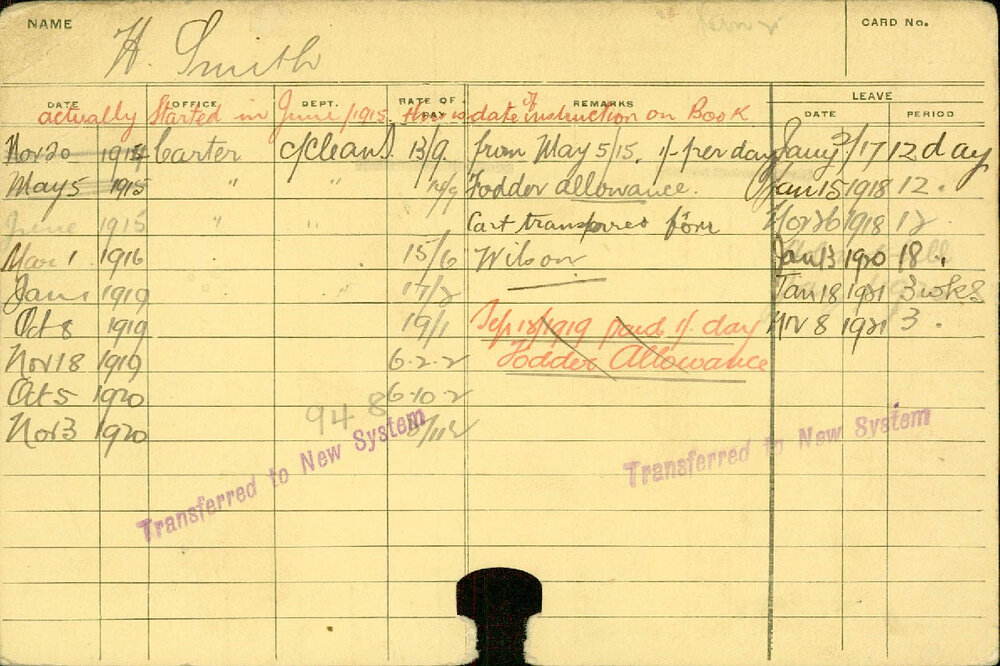 NAME H. Smith CARD No.
DATE OFFICE DEPT. RATE OF PAY REMARKS LEAVE
DATE PERIOD
actually Started in June 1915. this is date of instruction on Book
Nov 20 1914 Carter C/Cleans. 13/9. from May 5/15. 1/- per day Jany 2/17 12 day
May 5 1915 " " 14/9 Fodder allowance. Jan 15 1918 12.
June 1915 " " Cart transferred from Nov 26 1918 12
Mar 1 1916 15/6 Wilson Jan 13 1920 18.
Jan 1 1919 17/2 Jan 18 1921 3 wks
Oct 8 1919 19/1 Sep 18/1919 paid 1/- day Nov 8 1921 3.
Nov 18 1919 6-2-2 Fodder Allowance
Oct 5 1920 6-10-2
Nov 3 1920 948
Transferred to New System
Transferred to New System